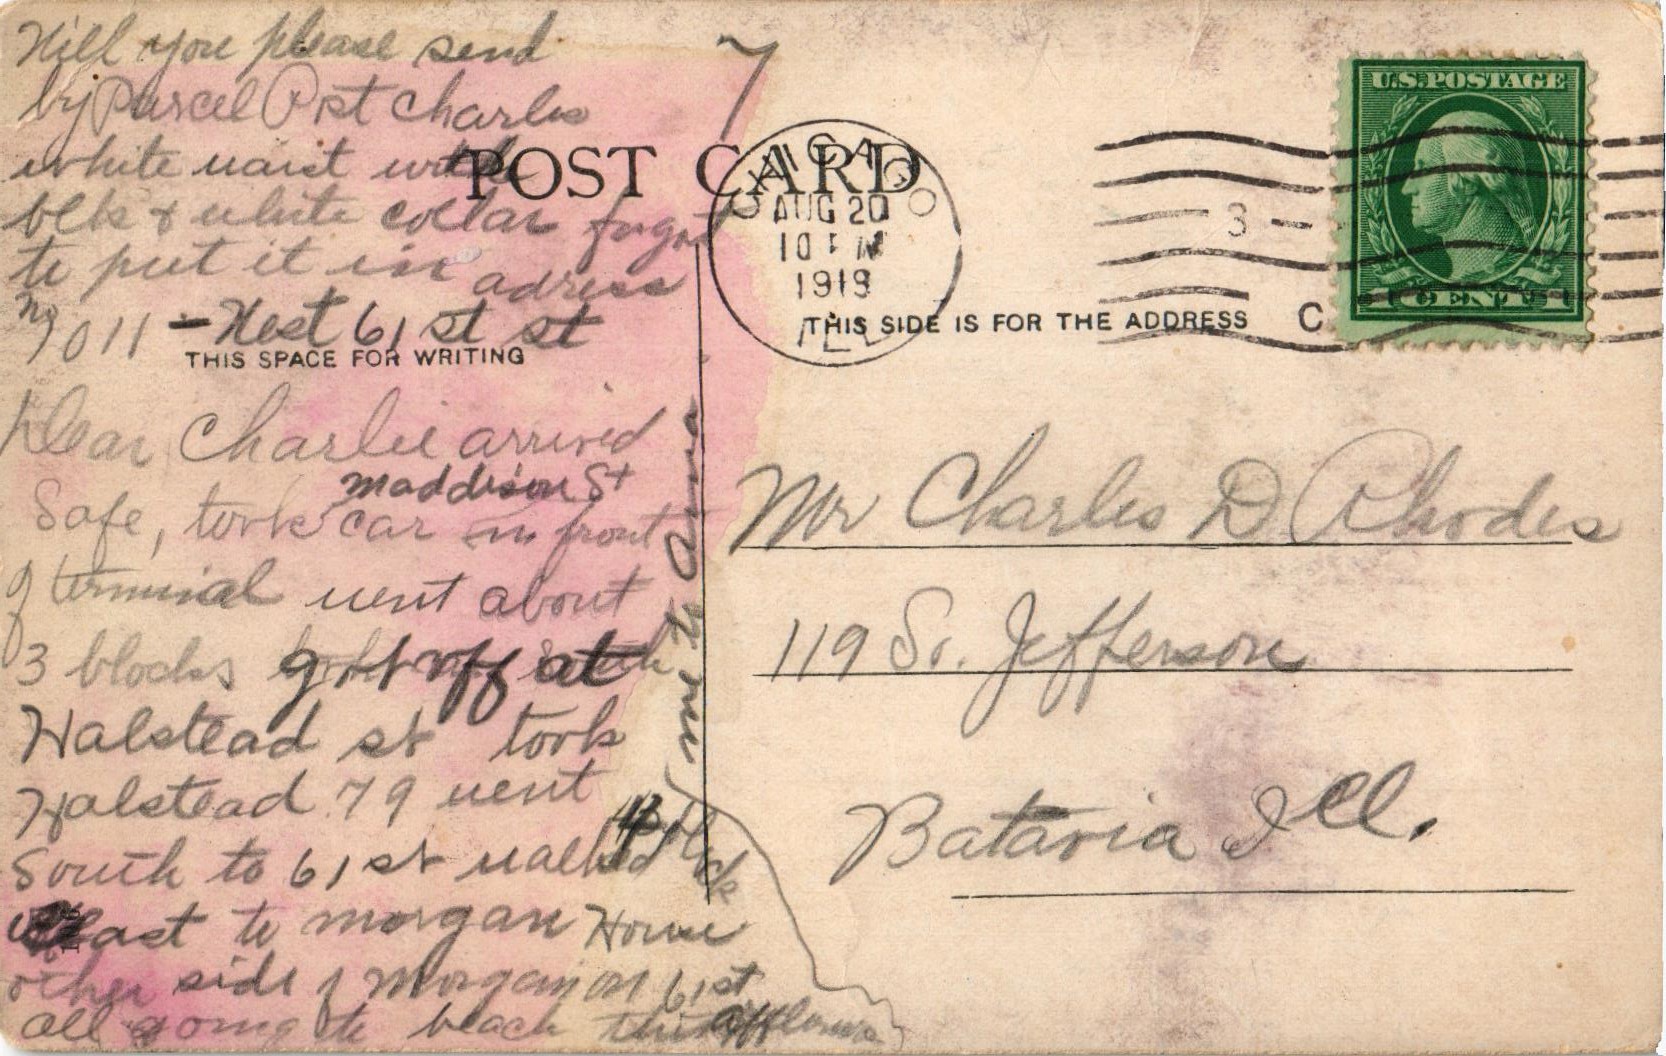 Will you please send
by Parcel Post Charles
white waist with
blk & white collar forgot
to put it in adress
No 1011 - West 61 st st
THIS SPACE FOR WRITING
Dear Charlie arrived
Safe, took maddison St car in front
of terminal went about
3 blocks got off at
Halstead st took
Halstead 79 went
South to 61 st walked
east to morgan House
other side of Morgan on 61st
all going to beach this
POST CARD
CHICAGO
AUG 20
10 PM
1919
ILL
3
U.S. POSTAGE
1 CENT 1
THIS SIDE IS FOR THE ADDRESS
C
Mr Charles D Rhodes
119 So. Jefferson
Batavia Ill.